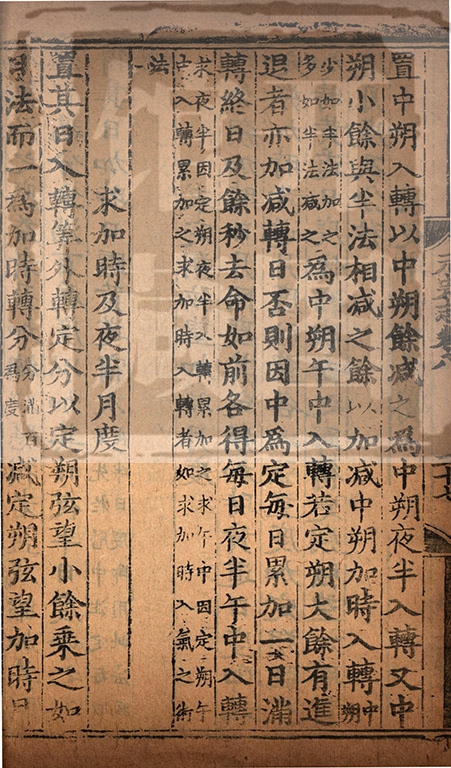 置中朔入轉以中朔餘減之爲中朔夜半入轉又中
朔小餘與半法相減之餘以加減中朔加時入轉中朔
少如半法加之多如半法減之爲中朔午中入轉若定朔大餘有進
退者亦加減轉日否則因中爲定每日累加一日滿
轉終日及餘秒去命如前各得每日夜半午中入轉
求夜半因定朔夜半入轉累加之求午中因定朔午
中入轉累加之求加時入轉者如求加時入氣之術
法
求加時及夜半月度
置其日入轉筭外轉定分以定朔弦望小餘乘之如
日法而一爲加時轉分分滿百爲度減定朔弦望加時日